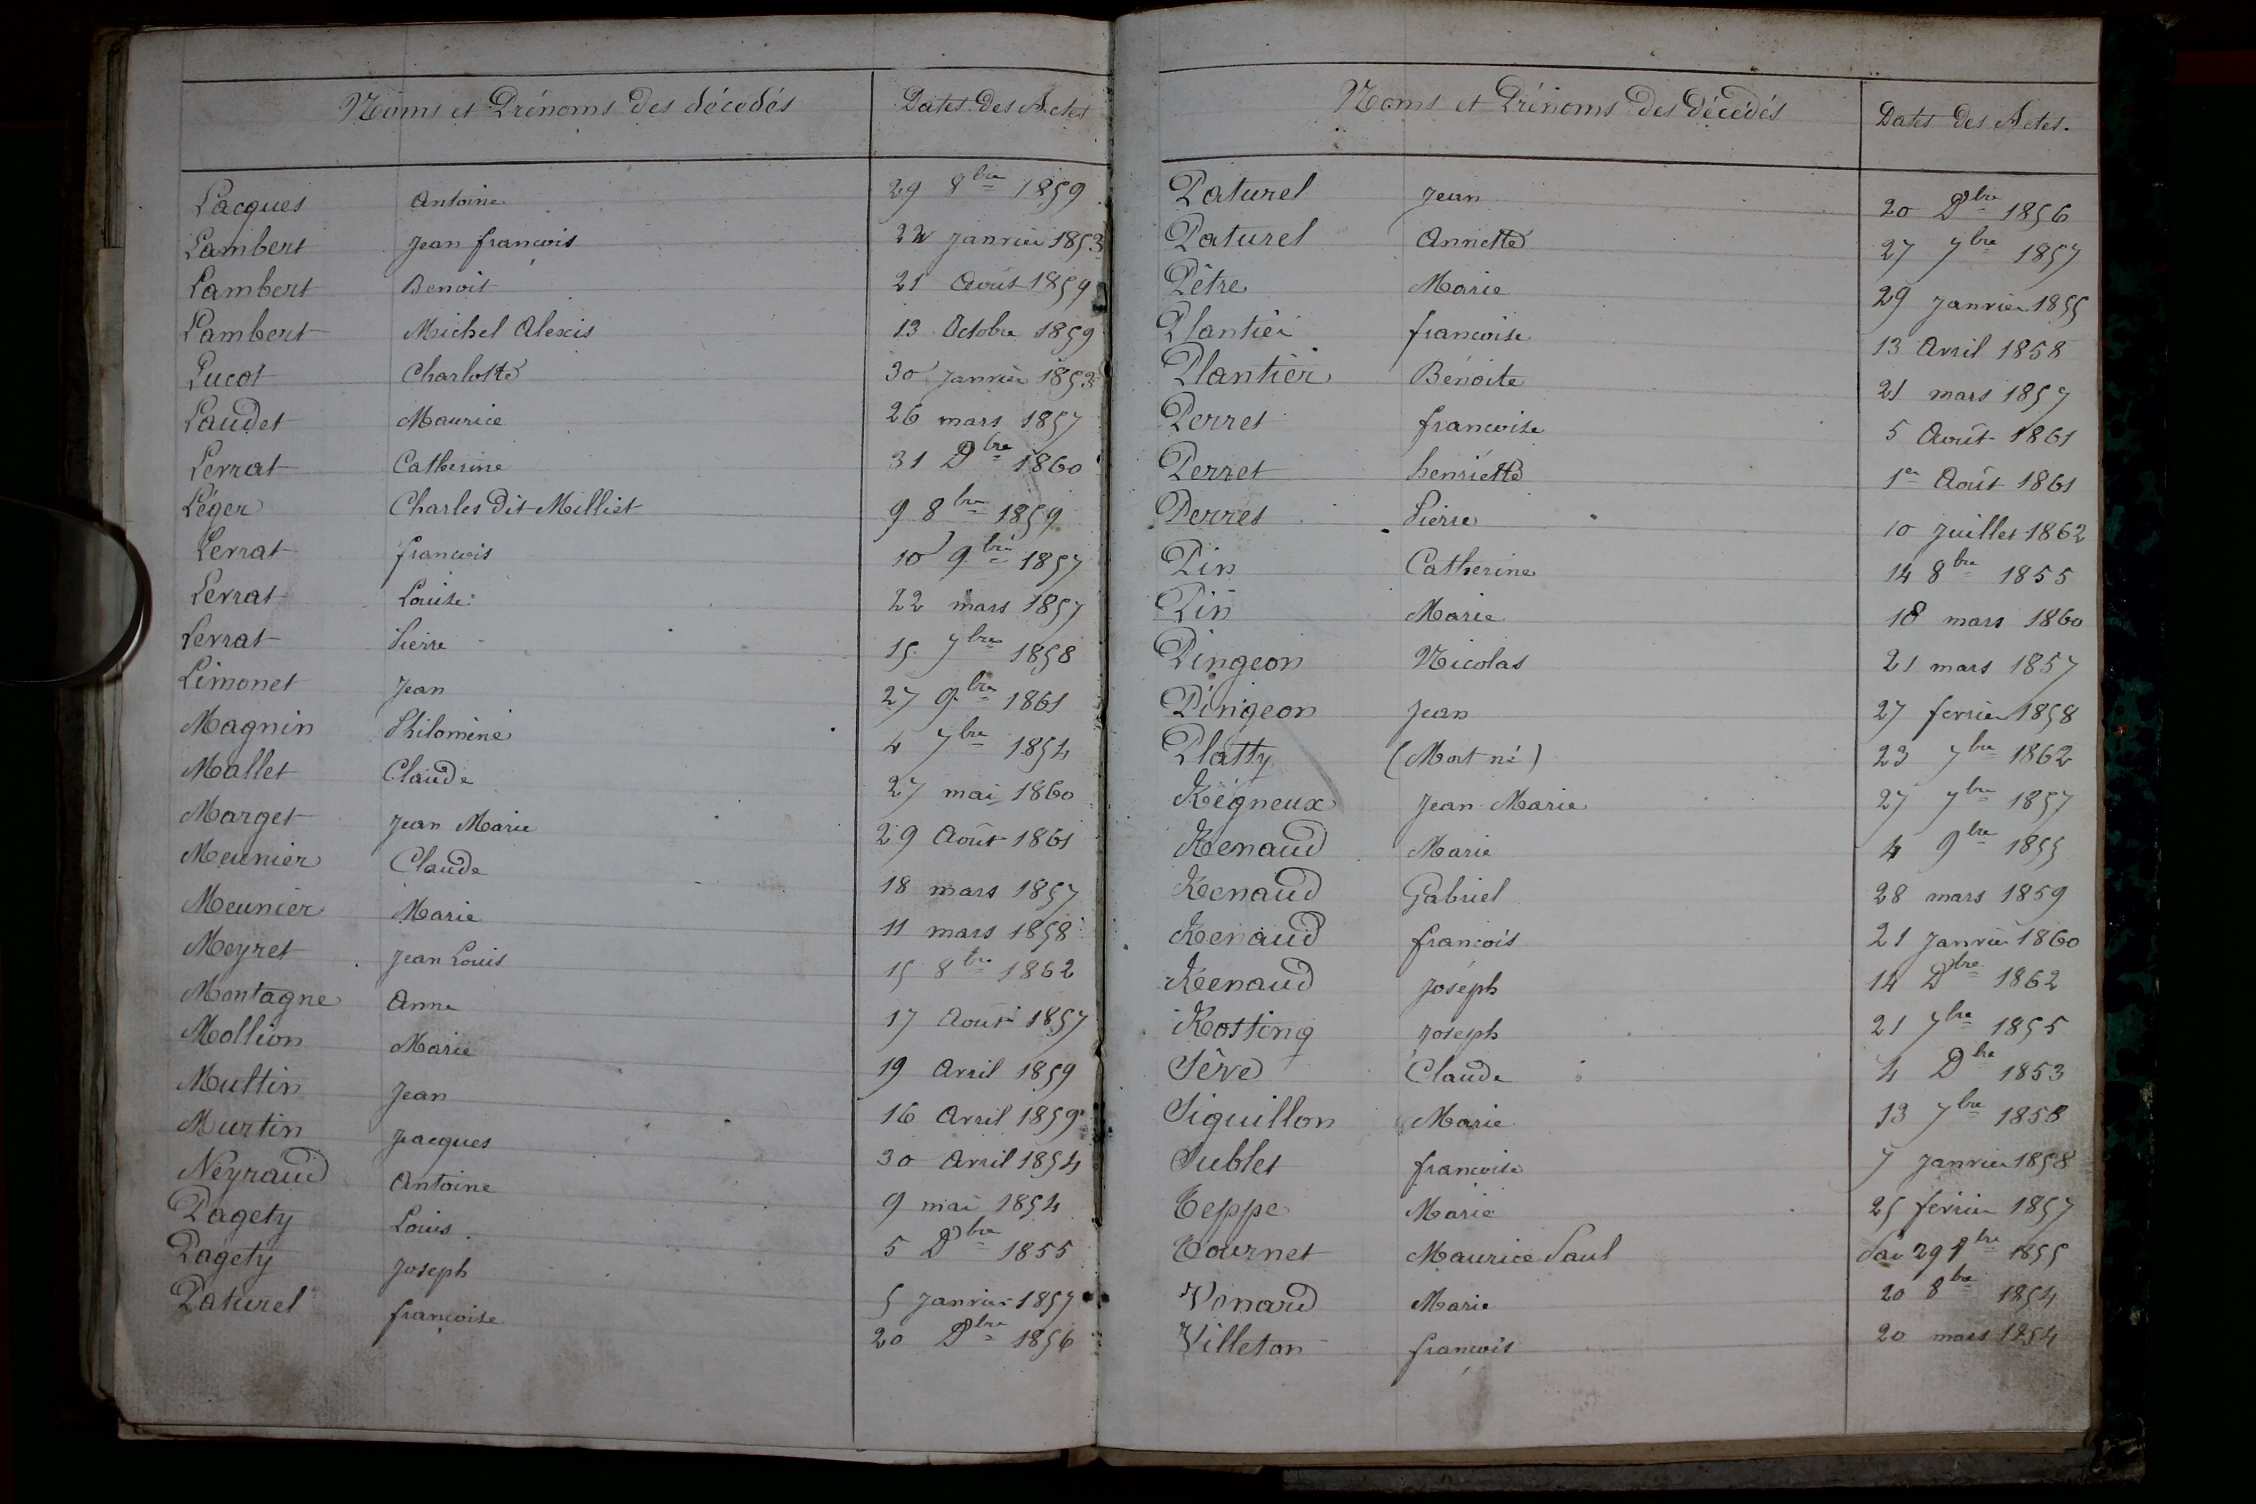 Noms et Prénoms des décédés Dates des Actes
Lacques Antoine 29 8bre 1859
Lambert Jean françois 22 Janvier 1853
Lambert Benoit 21 Août 1859
Lambert Michel Alexis 13 Octobre 1859
Lucot Charlotte 30 Janvier 1853
Laudet Maurice 26 mars 1857
Lerrat Catherine 31 Dbre 1860
Léger Charles dit Milliet 9 8bre 1859
Lerrat francois 10 9bre 1857
Lerrat Louise 22 mars 1857
Lerrat Pierre 15 7bre 1858
Limonet Jean 27 9bre 1861
Magnin Philomène 4 7bre 1854
Mallet Claude 27 mai 1860
Marget Jean Marie 29 Août 1861
Meunier Claude 18 mars 1857
Meunier Marie 11 mars 1858
Meyret Jean Louis 15 8bre 1862
Montagne Anne 17 Août 1857
Mollion Marie 19 Avril 1859
Multin Jean 16 Avril 1859
Murtin Jacques 30 Avril 1854
Neyraud Antoine 9 mai 1854
Pagety Louis 5 Dbre 1855
Pagety Joseph 5 Janvier 1857
Paturel françoise 20 Dbre 1856
Noms et Prénoms des décédés Dates des Actes
Paturel Jean 20 Dbre 1856
Paturel Annette 27 7bre 1857
Pêtre Marie 29 Janvier 1855
Plantier francoise 13 Avril 1858
Plantier Bénoite 21 mars 1857
Perret francoise 5 Août 1861
Perret henriette 1er Août 1861
Perret Pierre 10 Juillet 1862
Pin Catherine 14 8bre 1855
Pin Marie 18 mars 1860
Pingeon Nicolas 21 mars 1857
Pingeon Jean 27 fevrier 1858
Platty (Mort né) 23 7bre 1862
Régneux Jean Marie 27 7bre 1857
Renaud Marie 4 9bre 1855
Renaud Gabriel 28 mars 1859
Renaud francois 21 Janvier 1860
Renaud Joseph 14 Dbre 1862
Rosting Joseph 21 7bre 1855
Sêve Claude 4 Dbre 1853
Siguillon Marie 13 7bre 1858
Sublet francoise 7 Janvier 1858
Teppe Marie 25 fevrier 1857
Tournet Maurice Paul 29 bre 1855
Vonard Marie 20 8bre 1854
Villeton francois 20 mars 1854